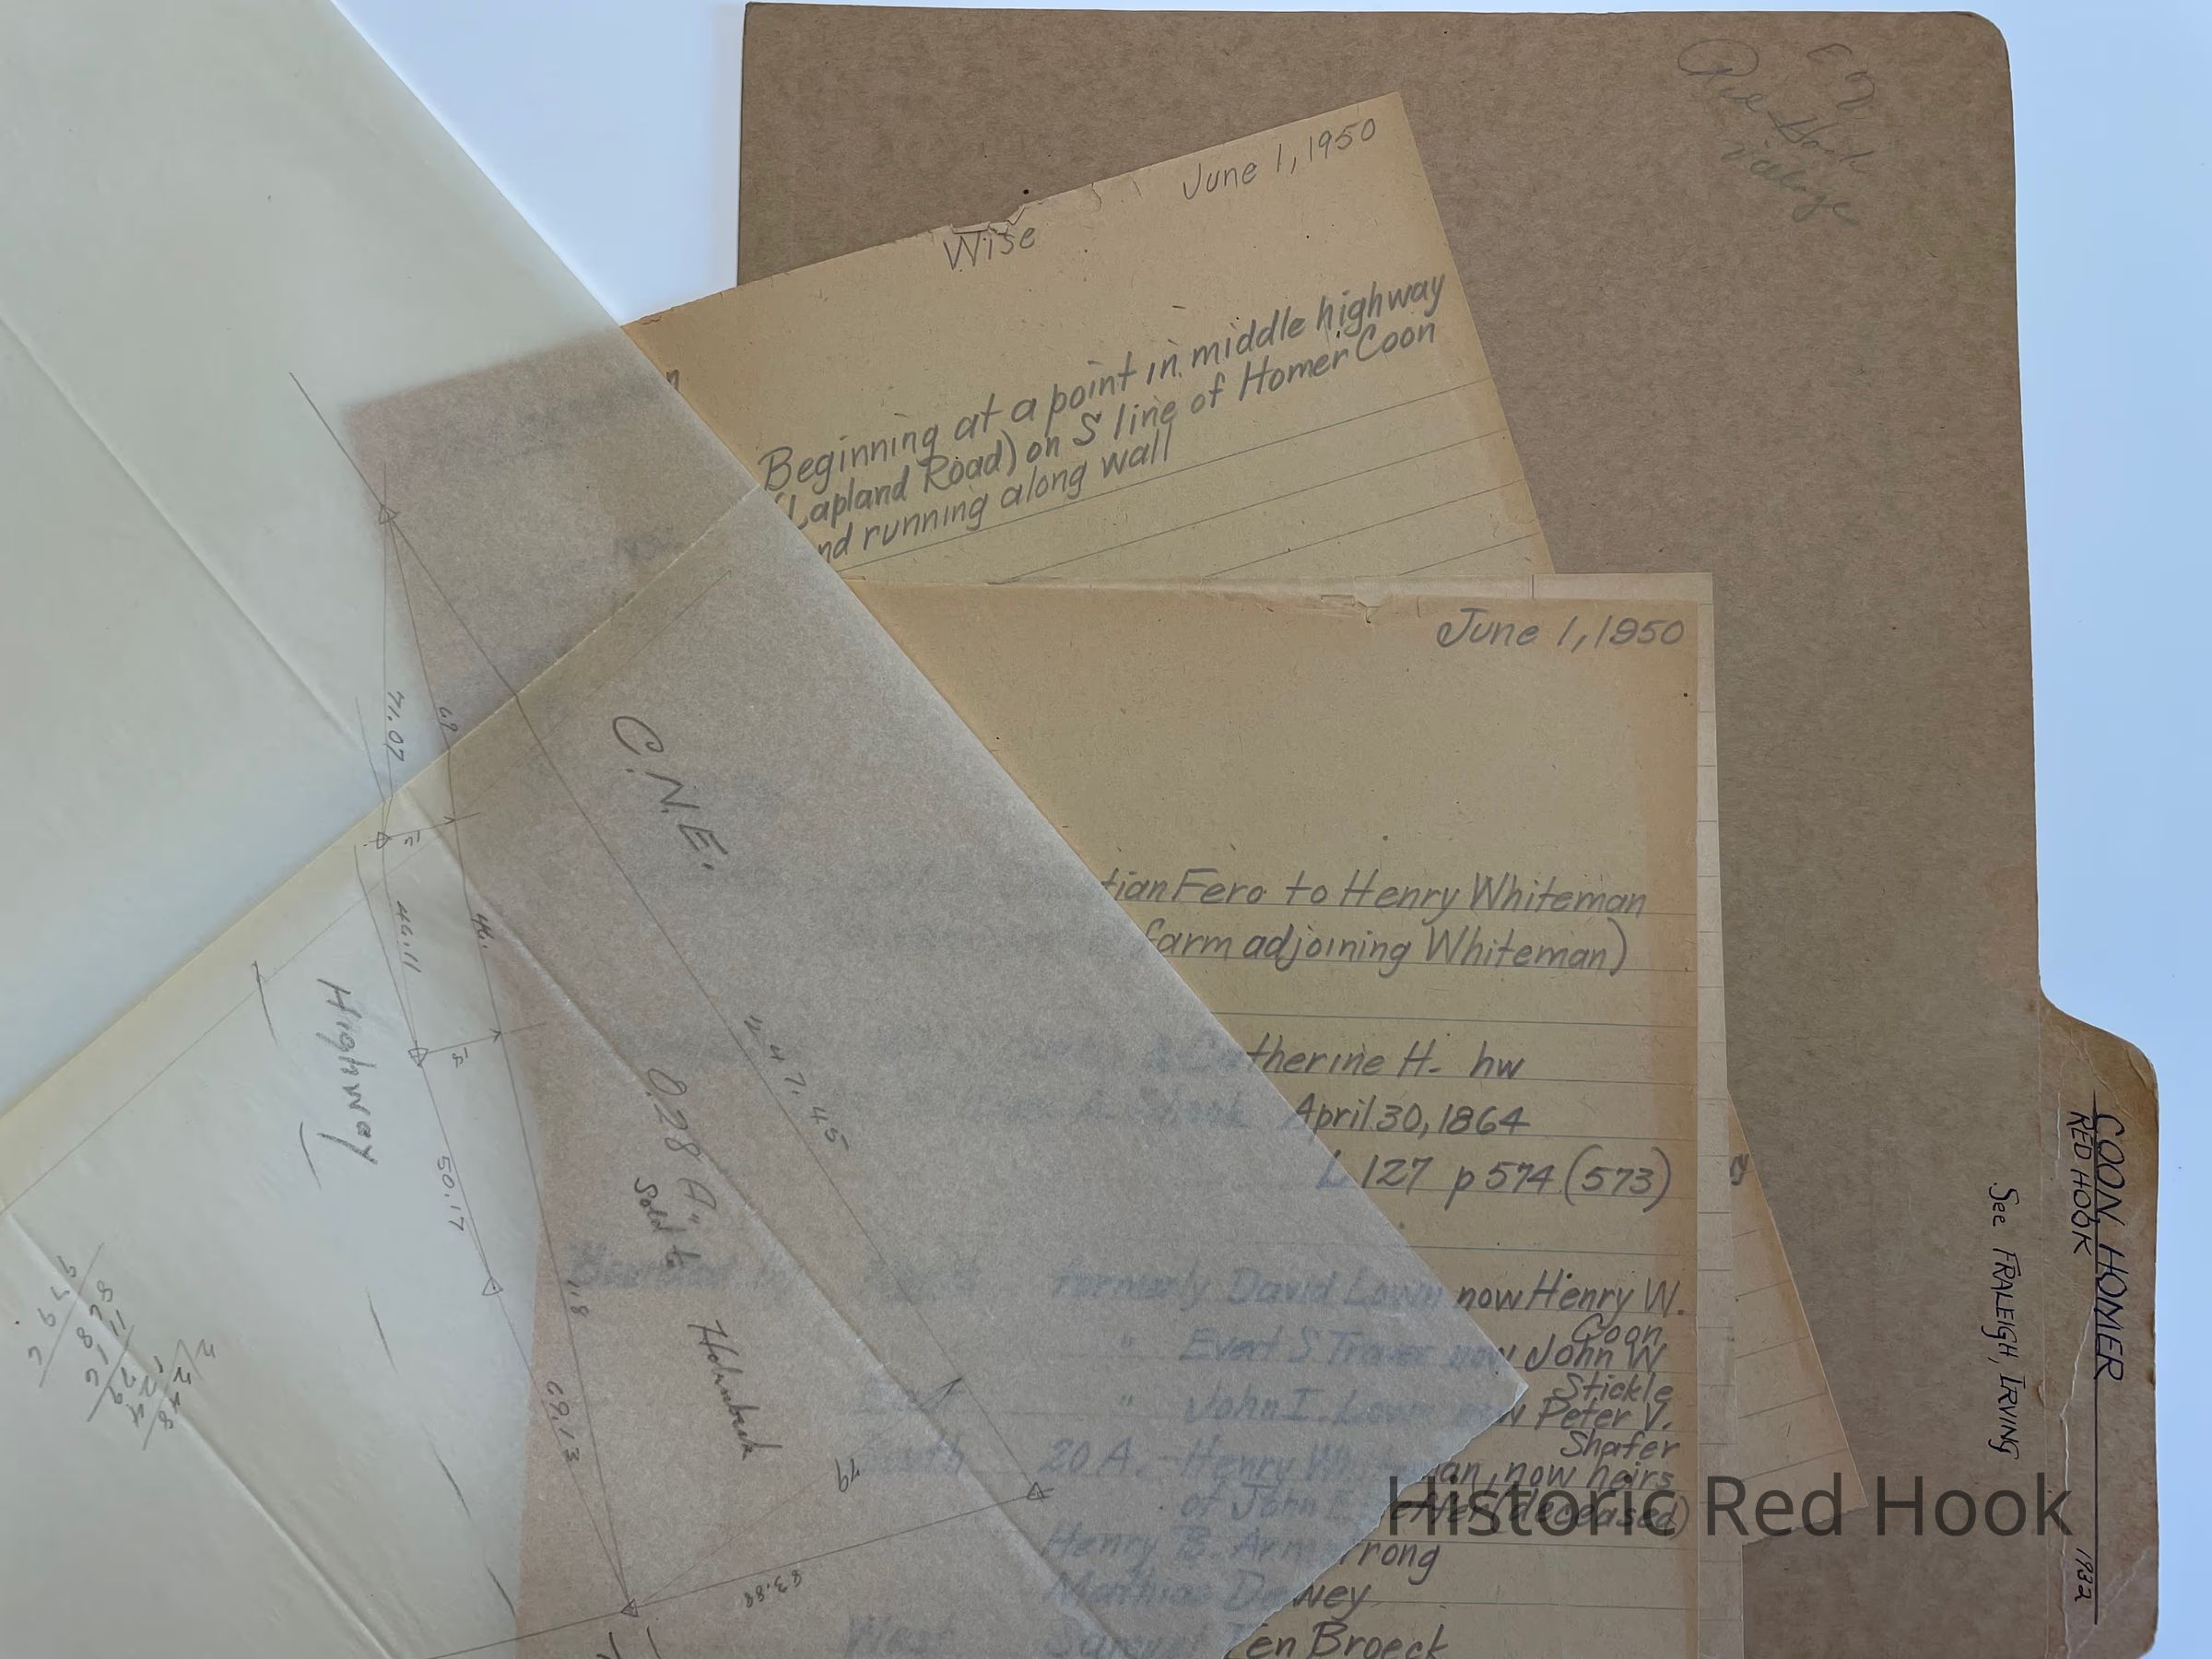 Red Hook
village
June 1, 1950
Wise
Beginning at a point in middle highway
(Lapland Road) on S line of Homer Coon
nd running along wall
June 1, 1950
tian Fero to Henry Whiteman
farm adjoining Whiteman)
& Catherine H. hw
April 30, 1864
L 127 p 574 (573)
Bounded North formerly David Lown now Henry W.
Coon
" Evert S Traver now John W
Stickle
East " John I. Lown now Peter V.
Shafer
South 20 A. - Henry Whiteman, now heirs
of John E. (deceased)
Henry B. Armstrong
Mathias Dewey
West Samuel Ten Broeck
C.N.E.
71.07
69
46.11
46.
Highway
50.17
247.45
0.28 A.
Sold to
118
69.13
79
83.88
COON, HOMER
RED HOOK
See FRALEIGH, IRVING
1932
Historic Red Hook